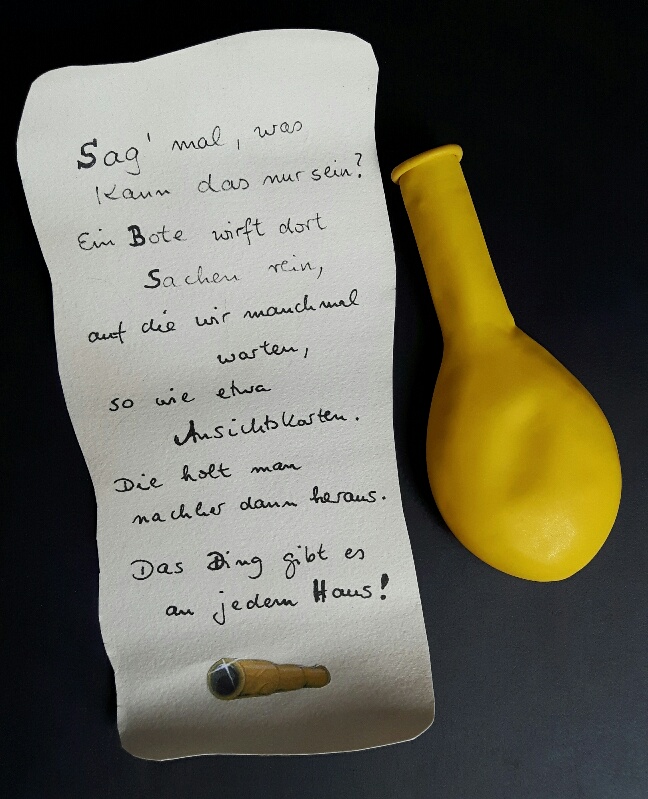 Sag' mal, was
kann das nur sein?
Ein Bote wirft dort
Sachen rein,
auf die wir manchmal
warten,
so wie etwa
Ansichtskarten.
Die holt man
nachher dann heraus.
Das Ding gibt es
an jedem Haus!